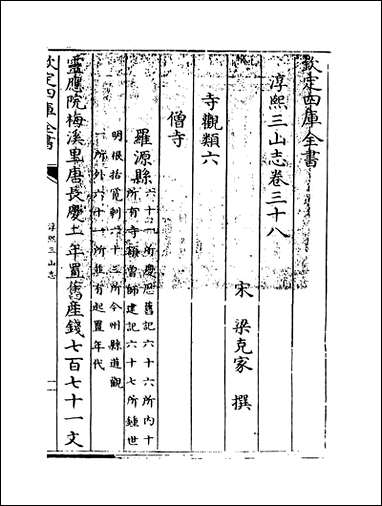 欽定四庫全書
淳熙三山志卷三十八
宋 梁克家 撰
寺觀類六
僧寺
羅源縣
六十一所慶厯舊記六十六所內十
所有寺額曾師建記六十七所鍾世
明根括寬剩六十三所今州縣道觀
一所外六十一所並有起置年代
靈應院梅溪里唐長慶二年置舊産錢七百七十一文
欽定四庫全書
淳熙三山志
一